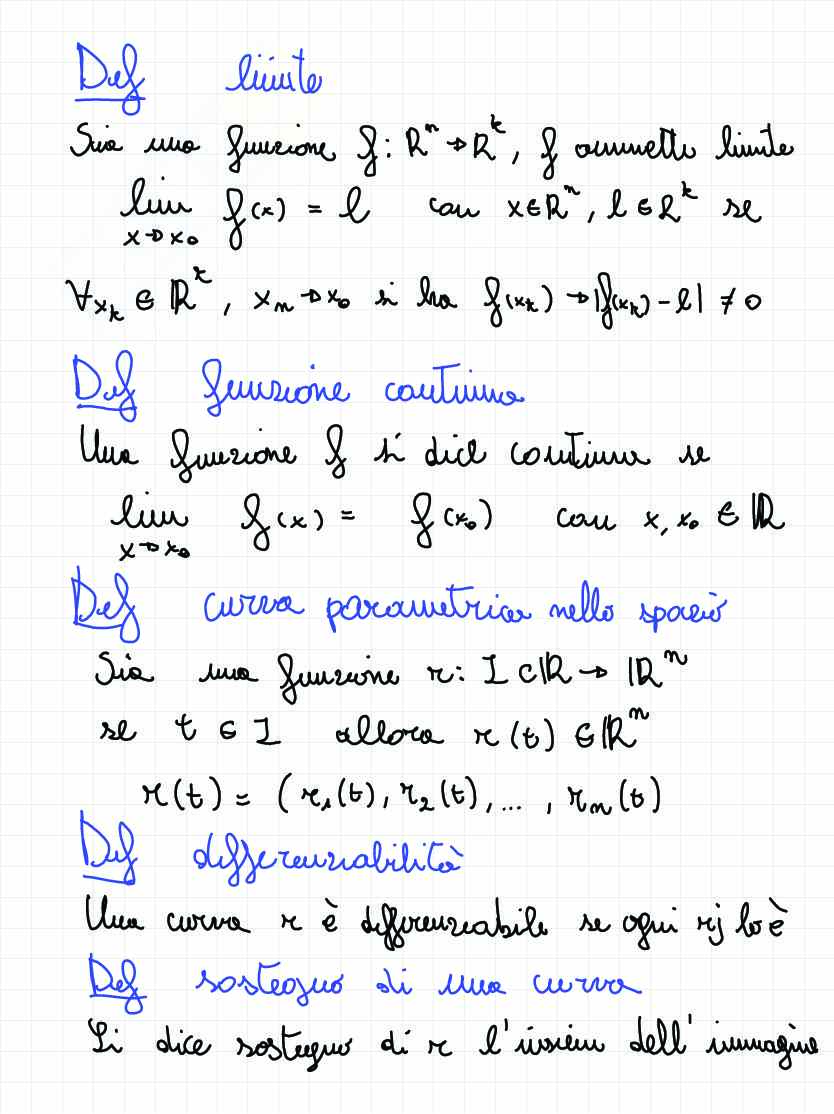 Def limite
Sia una funzione f: Rⁿ → Rᵏ, f ammette limite
lim f(x) = l con x∈Rⁿ, l∈Rᵏ se
x→x₀
∀xₖ ∈ ℝᵏ, xₙ→x₀ si ha f(xₖ) → |f(xₖ) - l| ≠ 0
Def funzione continua
Una funzione f si dice continua se
lim f(x) = f(x₀) con x, x₀ ∈ ℝ
x→x₀
Def curva parametrica nello spazio
Sia una funzione r: I ⊂ ℝ → ℝⁿ
se t ∈ I allora r(t) ∈ ℝⁿ
r(t) = (r₁(t), r₂(t), ... , rₙ(t)
Def differenziabilità
Una curva r è differenziabile se ogni rj lo è
Def sostegno di una curva
Si dice sostegno di r l'insiem dell'immagine